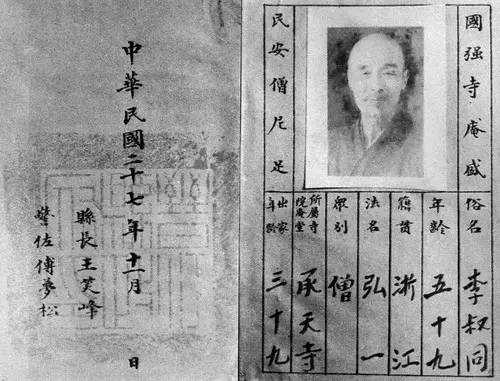 國强寺庵盛
民安僧尼足
俗名 李叔同
年齡 五十九
籍貫 浙江
法名 弘一
眾別 僧
所屬寺院庵堂 承天寺
出家年齡 三十九
中華民國二十七年十一月 日
縣長王笑峰
警佐傅夢松